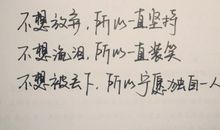 不想放弃，所以一直坚持
不想流泪，所以一直装笑
不想被丢下，所以宁愿独自一人